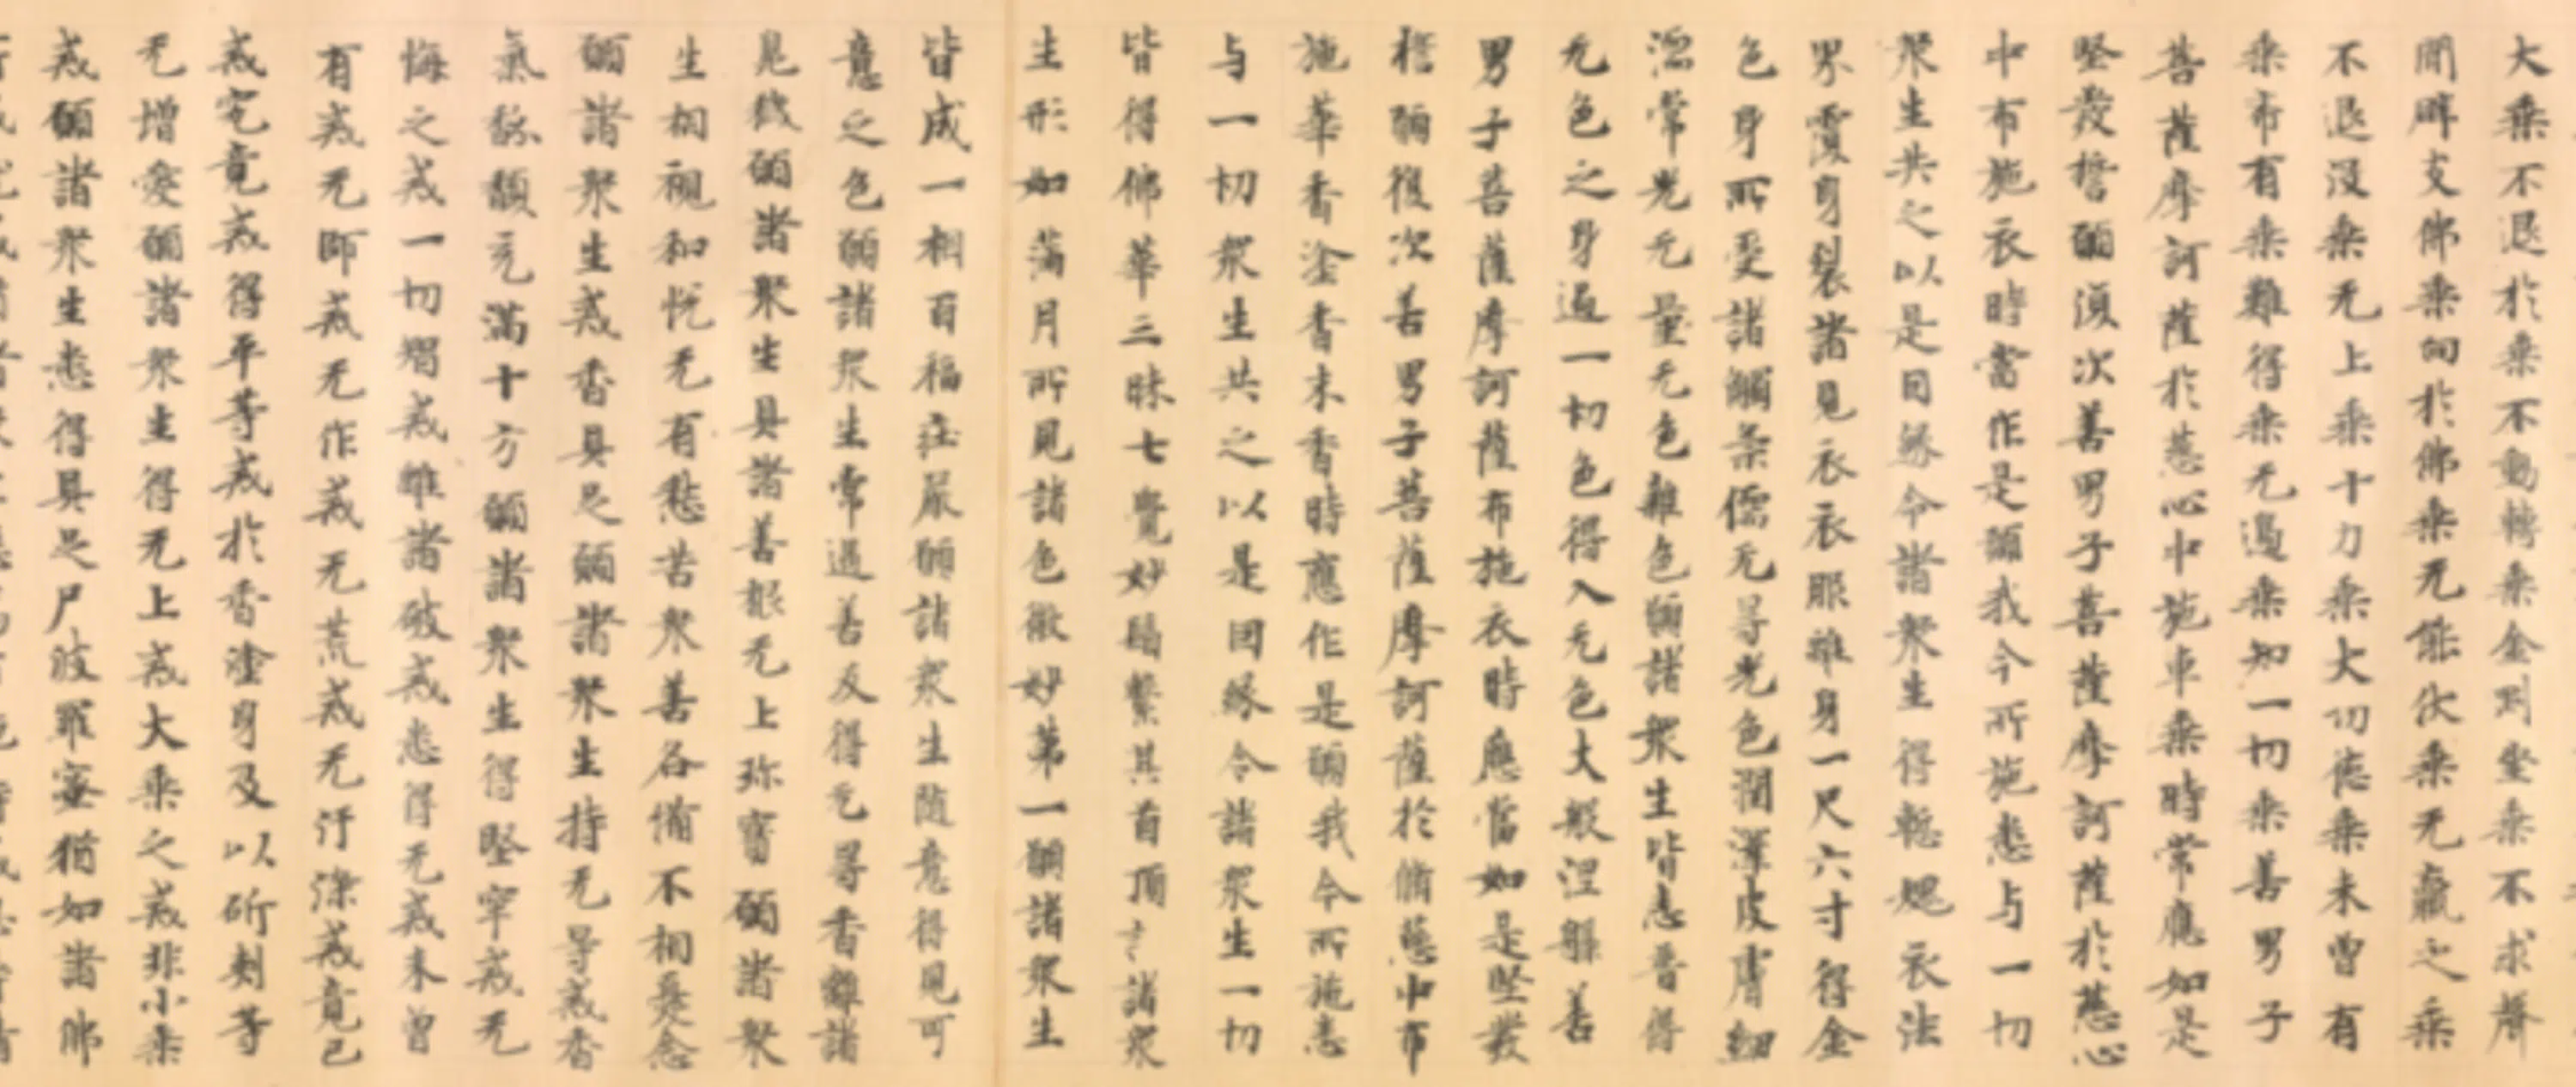 大乘不退於乘不動轉乘金剛坐乘不求聲
聞辟支佛乘向於佛乘无能伏乘无羸之乘
不退沒乘无上乘十力乘大功德乘未曾有
乘希有乘難得乘无邊乘知一切乘善男子
菩薩摩訶薩於慈心中施車乘時常應如是
堅發擔願復次善男子菩薩摩訶薩於慈心
中布施衣時當作是願我今所施悉与一切
眾生共之以是因緣令諸眾生得慙愧衣法
界覆身裂諸見衣衣服離身一尺六寸得金
色身所受諸觸柔濡无㝵光色潤澤皮膚細
濡常光无量无色離色願諸眾生皆悉普得
无色之身過一切色得入无色大般涅槃善
男子菩薩摩訶薩布施衣時應當如是堅發
擔願復次善男子菩薩摩訶薩於脩慈中布
施華香塗香末香時應作是願我今所施悉
与一切眾生共之以是因緣令諸眾生一切
皆得佛華三昧七覺妙鬘繫其首頂諸眾
生形如滿月所見諸色微妙第一願諸眾生
皆成一相百福莊嚴願諸眾生随意得見可
意之色願諸眾生常遇善友得无㝵香離諸
臰穢願諸眾生具諸善根无上珎寶願諸眾
生相視和悅无有愁苦眾善各備不相憂念
願諸眾生戒香具足願諸眾生持无㝵戒香
氣馚馥充滿十方願諸眾生得堅牢戒无
悔之戒一切智戒離諸破戒悉得无戒未曾
有戒无師戒无作戒无荒戒无汙染戒竟已
戒究竟戒得平等戒於香塗身及以斫刺等
无增愛願諸眾生得无上戒大乘之戒非小乘
戒願諸眾生悉得具足尸波羅蜜猶如諸佛